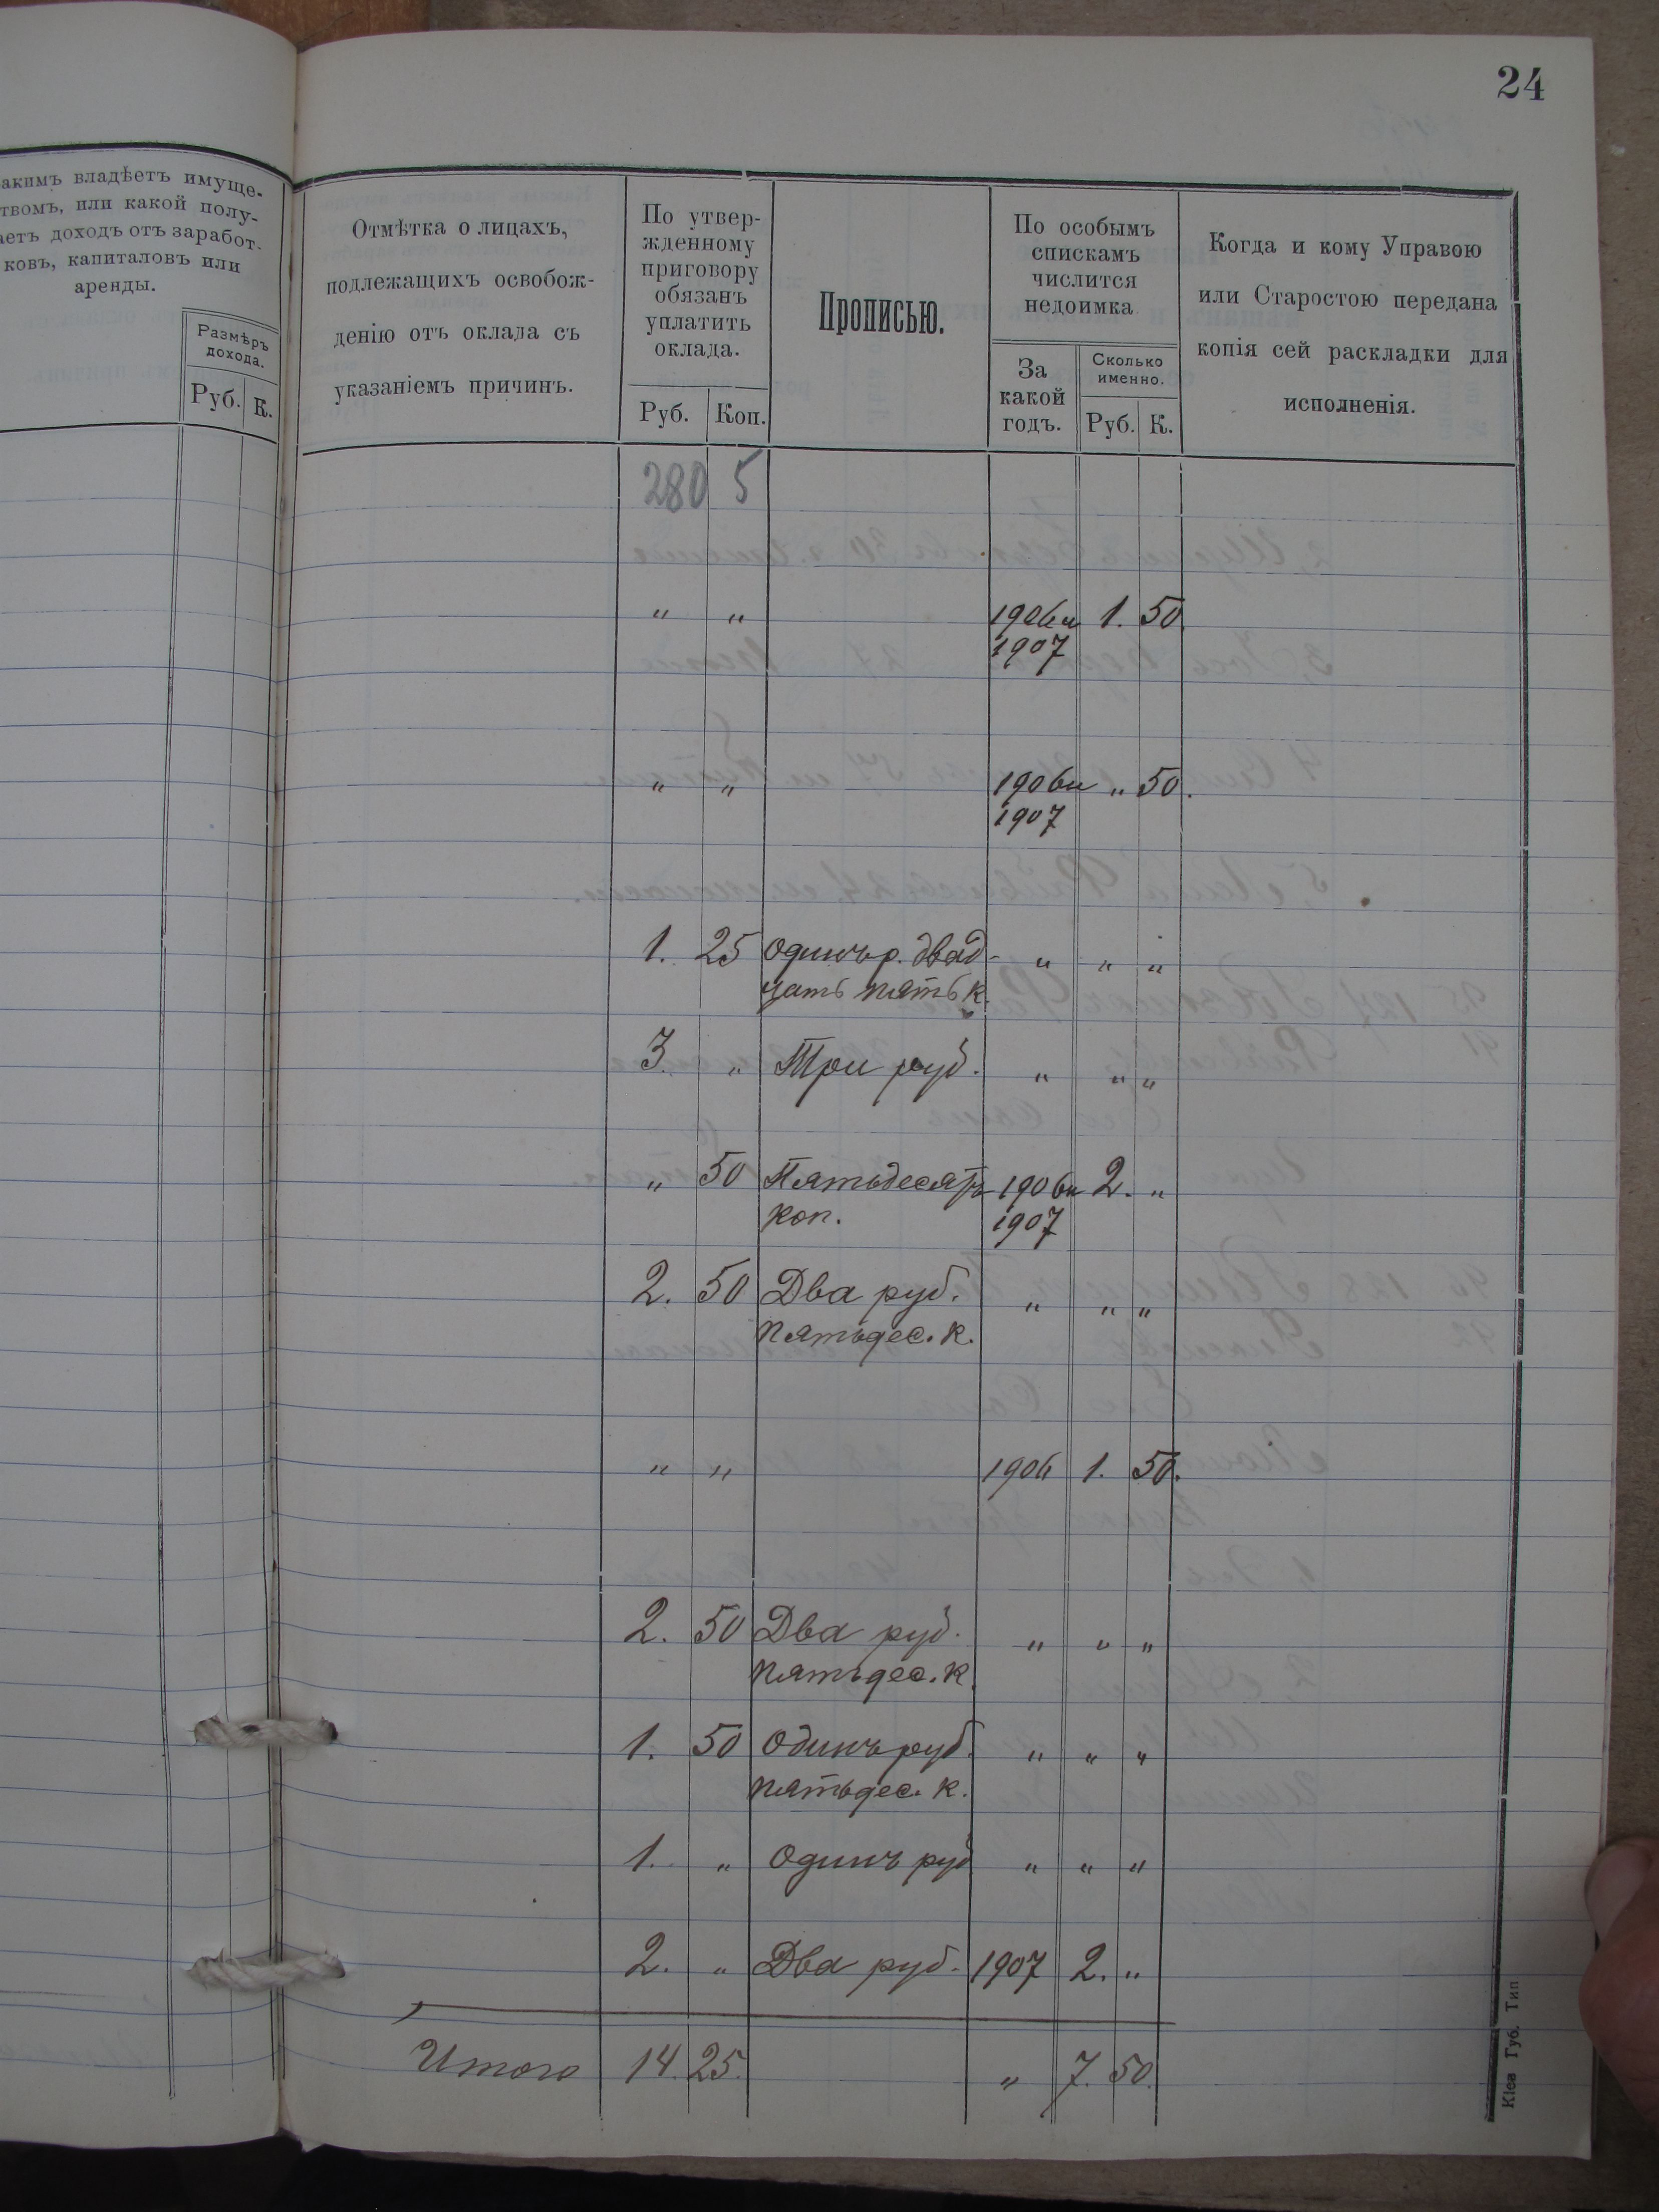 24
акимъ владѣетъ имуще-
твомъ, или какой полу-
аетъ доходъ отъ заработ-
ковъ, капиталовъ или
аренды.
Размѣръ
дохода.
Руб. К.
Отмѣтка о лицахъ,
подлежащихъ освобож-
денію отъ оклада съ
указаніемъ причинъ.
По утвер-
жденному
приговору
обязанъ
уплатить
оклада.
Руб. Коп.
Прописью.
По особымъ
спискамъ
числится
недоимка
За
какой
годъ.
Сколько
именно.
Руб. К.
Когда и кому Управою
или Старостою передана
копія сей раскладки для
исполненія.
280 5
" " 1906 и 1. 50.
1907
" " 1906 и " 50.
1907
1. 25 Одинъ р. двад- " " "
цать пять к.
3. " Три руб. " " "
" 50 Пятьдесятъ 1906 и 2. "
коп. 1907
2. 50 Два руб. " " "
пятьдес. к.
" " 1906 1. 50.
2. 50 Два руб. " " "
пятьдес. к.
1. 50 Одинъ руб. " " "
пятьдес. к.
1. " Одинъ руб " " "
2. " Два руб. 1907 2. "
Итого 14. 25. " 7. 50.
Кіев Губ. Тип